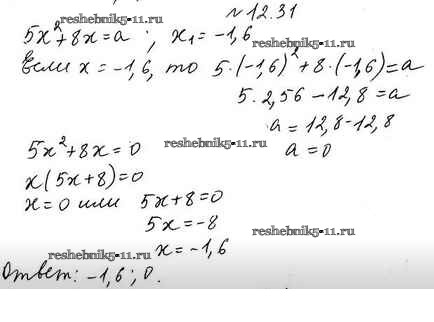 №12.31
reshebnik5-11.ru
5x²+8x=a ; x₁=-1,6
Если x=-1,6, то 5·(-1,6)²+8·(-1,6)=a
reshebnik5-11.ru
5·2,56-12,8=a
a=12,8-12,8
5x²+8x=0 reshebnik5-11.ru a=0
x(5x+8)=0
x=0 или 5x+8=0
5x=-8
reshebnik5-11.ru
x=-1,6
reshebnik5-11.ru
Ответ: -1,6; 0.